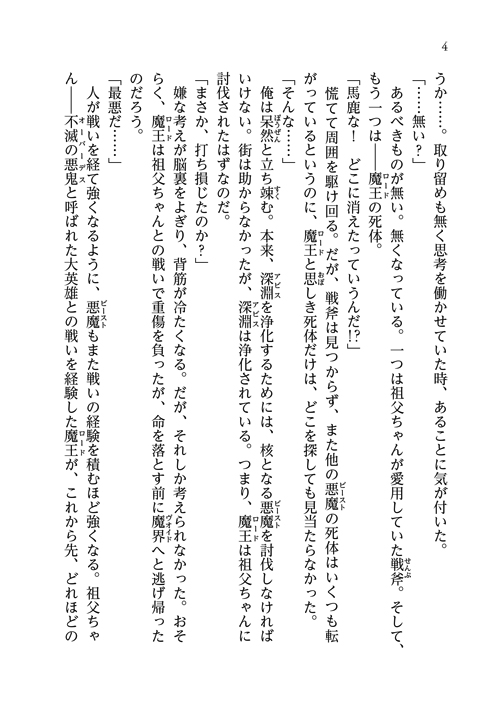 4
うか……。取り留めも無く思考を働かせていた時、あることに気が付いた。
「……無い？」
あるべきものが無い。無くなっている。一つは祖父ちゃんが愛用していた戦斧。そして、
もう一つは――魔王の死体。
「馬鹿な！　どこに消えたっていうんだ！？」
慌てて周囲を駆け回る。だが、戦斧は見つからず、また他の悪魔の死体はいくつも転
がっているというのに、魔王と思しき死体だけは、どこを探しても見当たらなかった。
「そんな……」
俺は呆然と立ち竦む。本来、深淵を浄化するためには、核となる悪魔を討伐しなければ
いけない。街は助からなかったが、深淵は浄化されている。つまり、魔王は祖父ちゃんに
討伐されたはずなのだ。
「まさか、打ち損じたのか？」
嫌な考えが脳裏をよぎり、背筋が冷たくなる。だが、それしか考えられなかった。おそ
らく、魔王は祖父ちゃんとの戦いで重傷を負ったが、命を落とす前に魔界へと逃げ帰った
のだろう。
「最悪だ……」
人が戦いを経て強くなるように、悪魔もまた戦いの経験を積むほど強くなる。祖父ちゃ
ん――不滅の悪鬼と呼ばれた大英雄との戦いを経験した魔王が、これから先、どれほどの